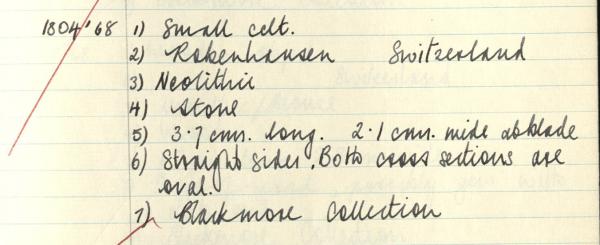 1304'68 1) Small celt.
2) Robenhausen Switzerland
3) Neolithic
4) Stone
5) 3.7 cms. long. 2.1 cms. wide at blade
6) Straight sides. Both cross sections are
oval.
7) Blackmore Collection